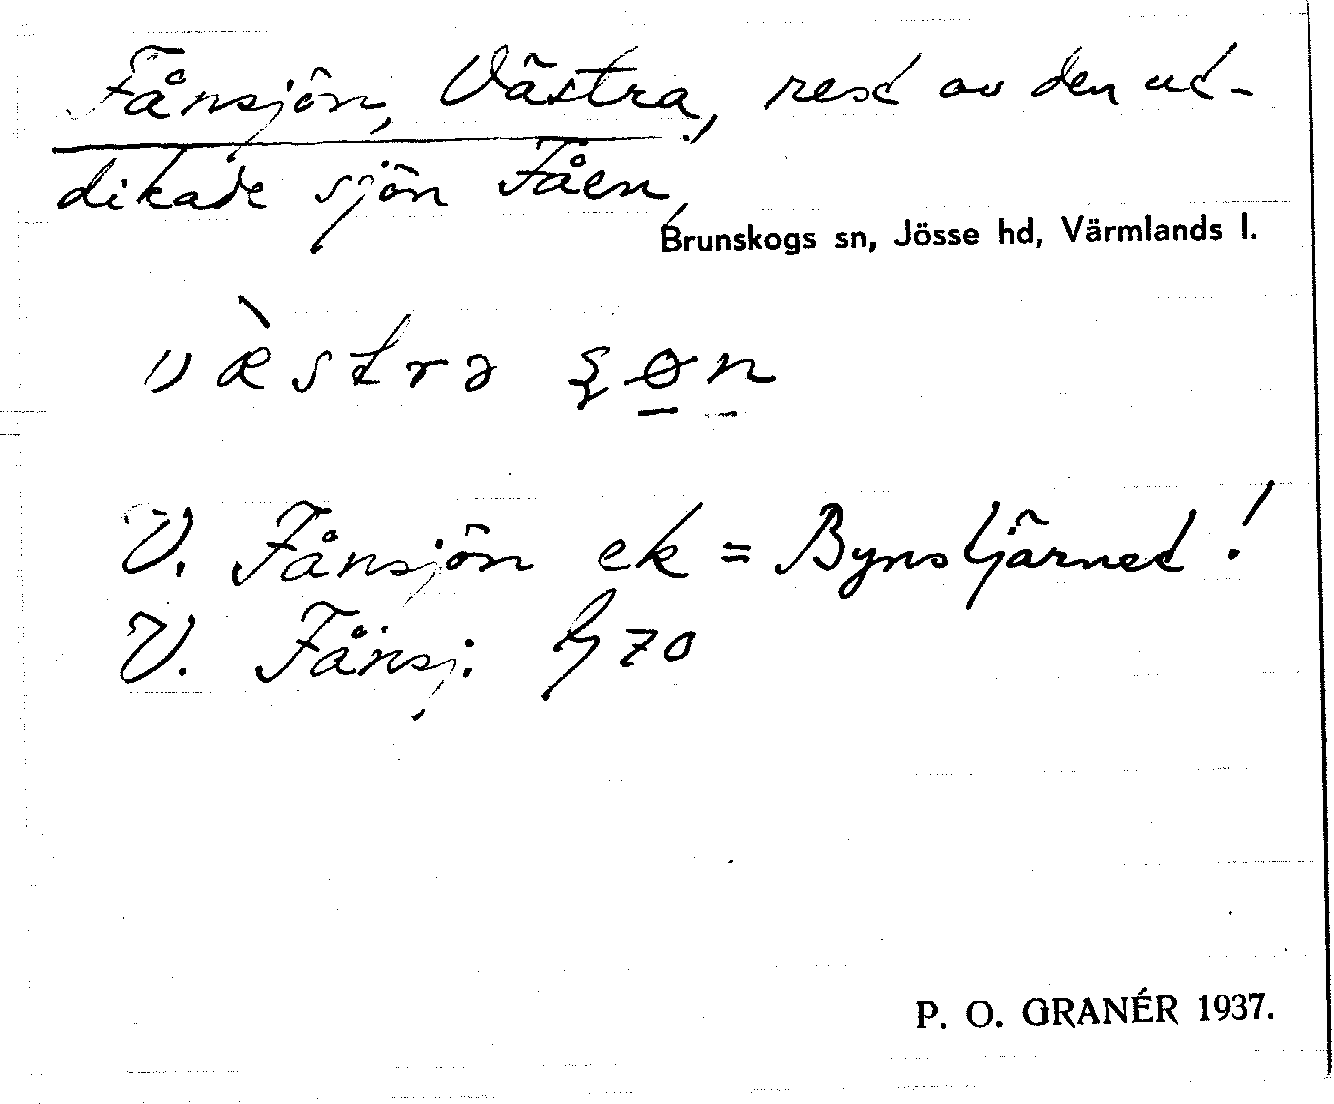 Fånsjön, Västra, rest av den ut-
dikade sjön Fåen,
Brunskogs sn, Jösse hd, Värmlands l.
væ̀strə ʂøn
V. Fånsjön ek = Bynstjärnet!
V. Fånsj. 70
P. O. GRANÉR 1937.